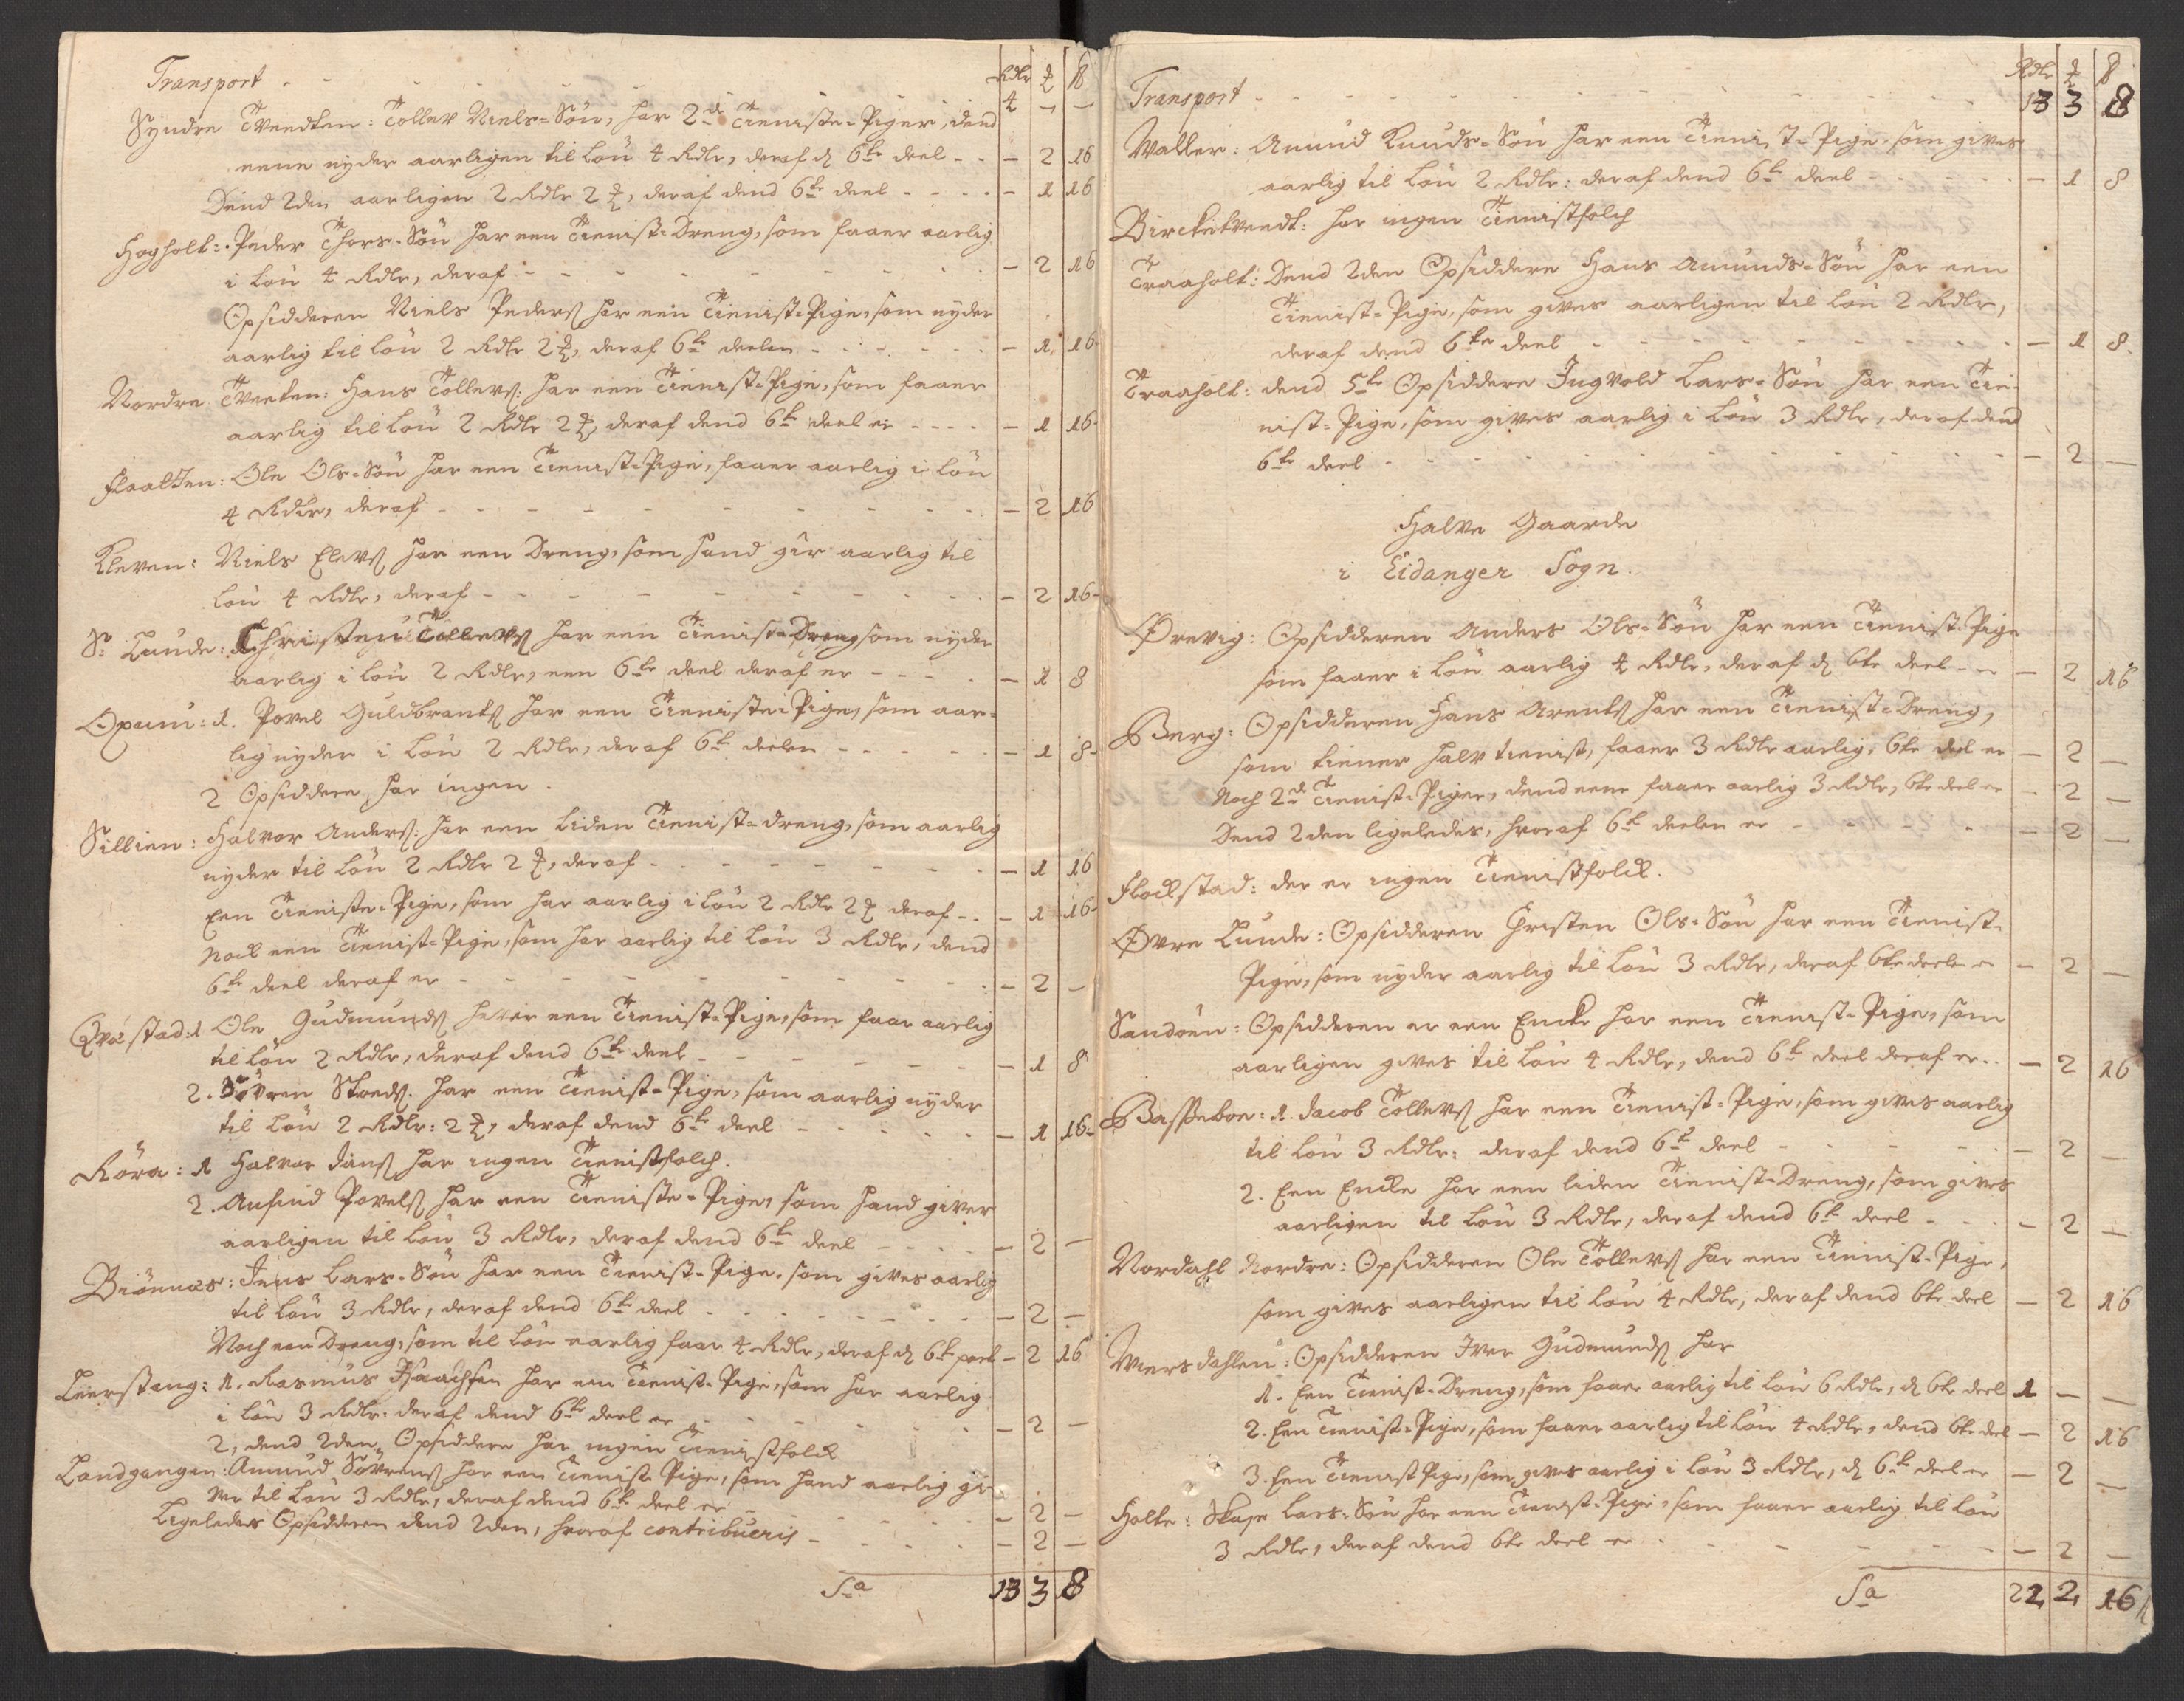 Transport - - - - - - Rdlr ℥ ß
4 - -
Syndre Tveedten: Tollev Niels-Søn, har 2de Tieniste-Piger, dend
eene nyder aarligen til Løn 4 Rdlr, deraf d 6te deel - - - 2 16
Dend 2den aarligen 2 Rdlr 2 ℥, deraf dend 6te deel - - - - 1 16
Hogholt: Peder Thors-Søn har een Tienist-Dreng, som faaer aarlig
i Løn 4 Rdlr, deraf - - - - - 2 16
Opsidderen Niels Peders har een Tienist-Pige, som nyder
aarlig til Løn 2 Rdlr 2 ℥, deraf 6te deelen - - - - 1 16
Nordre Tveeten: Hans Tollevs: har een Tienist-Pige, som faaer
aarlig til Løn 2 Rdlr 2 ℥, deraf dend 6te deel er - - - - 1 16
Flaatten: Ole Ols-Søn har een Tienist-Pige, faaer aarlig i Løn
4 Rdlr, deraf - - - - - - 2 16
Kleven: Niels Elevs har een Dreng, som hand gir aarlig til
Løn 4 Rdlr, deraf - - - - - - 2 16
S: Lunde: Christen Tollevs har een Tienist-Dreng som nyder
aarlig i Løn 2 Rdlr, een 6te deel deraf er - - - - 1 8
Opaun: 1. Povel Guldbrants har een Tieniste-Pige, som aar-
lig nyder i Løn 2 Rdlr, deraf 6te deelen - - - - 1 8
2 Opsiddere har ingen.
Sillien: Halvor Anders: har een liden Tienist-dreng, som aarlig
nyder til Løn 2 Rdlr 2 ℥, deraf - - - - - 1 16
Een Tieniste-Pige, som har aarlig i Løn 2 Rdlr 2 ℥ deraf - - - 1 16
Nock een Tienist-Pige, som har aarlig til Løn 3 Rdlr, dend
6te deel deraf er - - - - - 2 -
Qvestad: 1 Ole Gudmunds har een Tienist-Pige, som faar aarlig
til Løn 2 Rdlr, deraf dend 6te deel - - - - 1 8
2. Søvren har een Tienist-Pige, som aarlig nyder
til Løn 2 Rdlr: 2 ℥, deraf dend 6te deel - - - - 1 16
Röra: 1 Halvor Jans har ingen Tienistfolch.
2. Anfind Povels har een Tieniste-Pige, som hand giver
aarligen til Løn 3 Rdlr, deraf dend 6te deel - - - - 2 -
Biönnæs: Jens Lars-Søn har een Tienist-Pige, som gives aarlig
til Løn 3 Rdlr, deraf dend 6te deel - - - - 2 -
Noch een Dreng, som til Løn aarlig faar 4 Rdlr, deraf d 6te part - 2 16
Leerstang: 1. Rasmus Isaachsen har een Tienist-Pige, som har aarlig
i Løn 3 Rdlr. deraf dend 6te deel er - - - - 2 -
2, dend 2den Opsiddere har ingen Tienistfolck
Landgangen: Amund Søvrens har een Tienist Pige, som hand aarlig gi-
ver til Løn 3 Rdlr, deraf dend 6te deel er - - - - 2 -
Ligeledes Opsidderen dend 2den, hvoraf contribueris - - - - 2 -
Sa 13 3 8
Rdlr ℥ ß
Transport - - - - - - 13 3 8
Waller: Amund Knuds-Søn har een Tienist-Pige, som gives
aarlig til Løn 2 Rdlr: deraf dend 6te deel - - - - 1 8
Birchetveedt: har ingen Tienistfolch
Traaholt: Dend 2den Opsiddere Hans Amunds-Søn har een
Tienist-Pige, som gives aarligen til Løn 2 Rdlr,
deraf dend 6te deel - - - - - 1 8
Traaholt: dend 5te Opsiddere Ingvold Lars-Søn har een Tie-
nist-Pige, som gives aarlig i Løn 3 Rdlr, deraf dend
6te deel - - - - - - 2 -
Halve Gaarde
i Eidanger Sogn.
Ørevig: Opsidderen Anders Ols-Søn har een Tienist-Pige
som faaer i Løn aarlig 4 Rdlr, deraf d 6te deel er - 2 16
Berg: Opsidderen Hans Arents har een Tienist-Dreng,
som tiener halv tienist, faaer 3 Rdlr aarlig, 6te deel er - 2 -
Noch 2de Tienist-Piger, dend eene faaer aarlig 3 Rdlr, 6te deel er - 2 -
Dend 2den ligeledes, hvoraf 6te deelen er - - - - 2 -
Flockstad: der er ingen Tienistfolck.
Øvre Lunde: Opsidderen Christen Ols-Søn har een Tienist-
Pige, som nyder aarlig til Løn 3 Rdlr, deraf 6te deelen - 2 -
Sandøen: Opsidderen er een Encke har een Tienist-Pige, som
aarligen gives til Løn 4 Rdlr, dend 6te deel deraf er - - 2 16
Basseboe: 1. Jacob Tollevs har een Tienist-Pige, som gives aarlig
til Løn 3 Rdlr: deraf dend 6te deel - - - - 2 -
2. Een Encke har een liden Tienist-Dreng, som gives
aarligen til Løn 3 Rdlr, deraf dend 6te deel - - - - 2 -
Nordahl Nordre: Opsidderen Ole Tollevs har een Tienist-Pige,
som gives aarligen til Løn 4 Rdlr, deraf dend 6te deel - 2 16
Wiersdahlen: Opsidderen Iver Gudmunds har
1. Een Tienist-Dreng, som faaer aarlig til Løn 6 Rdlr, d 6te deel 1 - -
2. Een Tienist-Pige, som faaer aarlig til Løn 4 Rdlr, dend 6te deel - 2 16
3. Een Tienist Pige, som gives aarlig i Løn 3 Rdlr, d 6te deel er - 2 -
Holte: Lars-Søn har een Tienist-Pige, som faaer aarlig til Løn
3 Rdlr, deraf dend 6te deel er - - - - 2 -
Sa 22 2 16